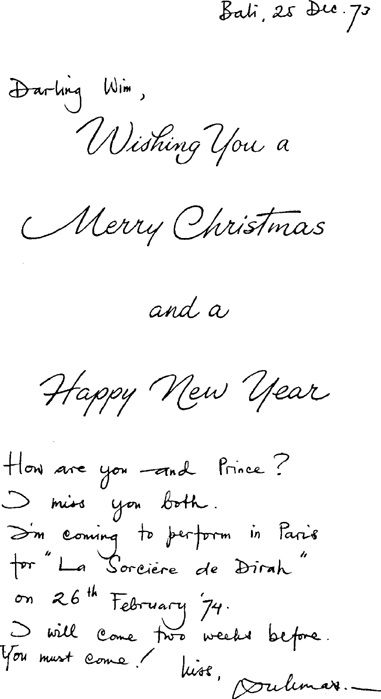 Bali, 25 Dec. 73
Darling Wim,
Wishing You a
Merry Christmas
and a
Happy New Year
How are you and Prince?
I miss you both.
I'm coming to perform in Paris
for "La Sorcière de Dirah"
on 26th February '74.
I will come two weeks before.
You must come!
kiss,